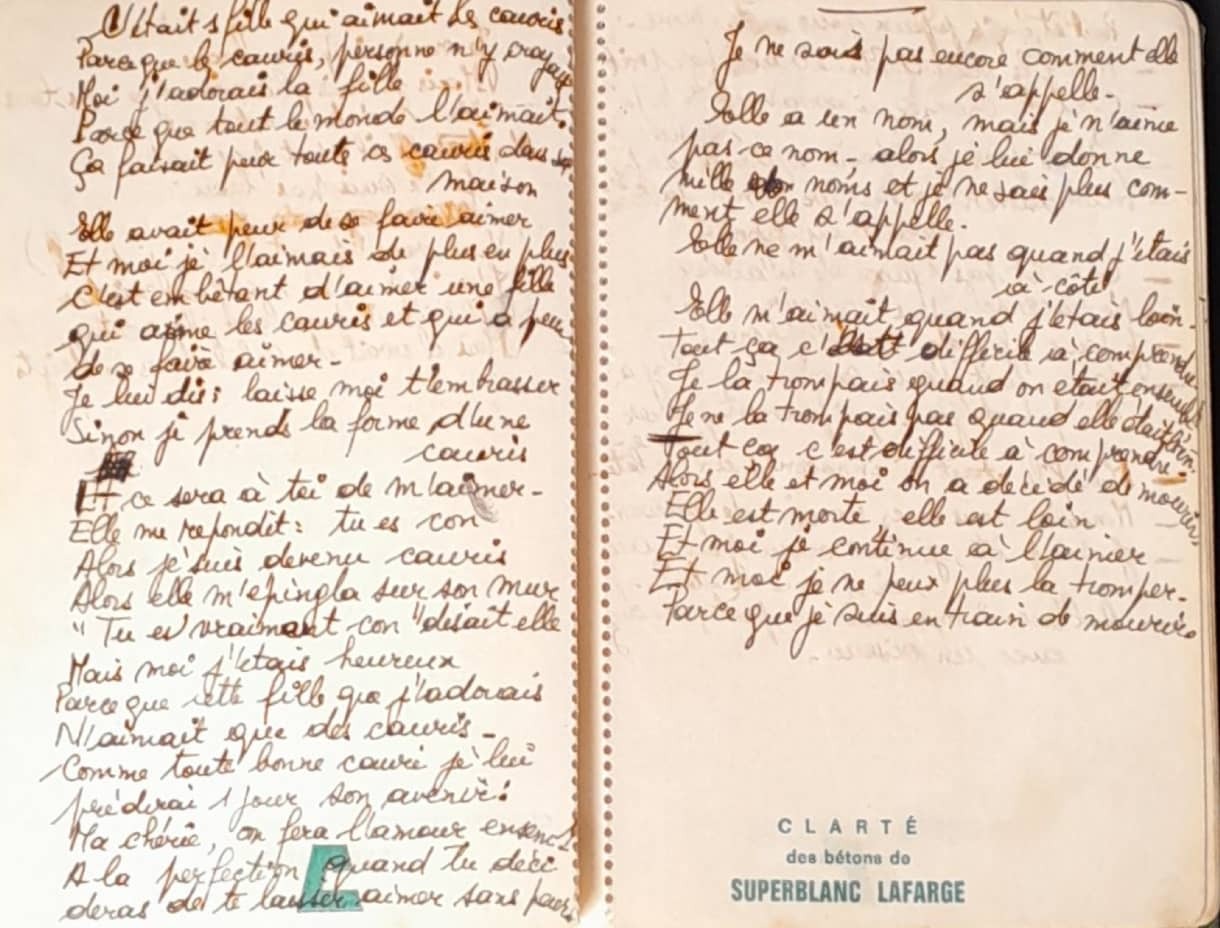 C'était 1 fille qui aimait les cauris
Parce que les cauris, personne n'y croyait
Moi j'adorais la fille
Parce que tout le monde l'aimait.
Ça faisait peur toute ces cauris dans sa
maison
Elle avait peur de se faire aimer
Et moi je l'aimais de plus en plus
C'est embêtant d'aimer une fille
qui aime les cauris et qui a peur
de se faire aimer -
Je lui dis : laisse moi t'embrasser
Sinon je prends la forme d'une
cauris
Et ce sera à toi de m'aimer -
Elle me repondit : tu es con
Alors je suis devenu cauris
Alors elle m'épingla sur son mur
"Tu es vraimant con" disait elle
Mais moi j'étais heureux
Parce que cette fille que j'adorais
N'aimait que des cauris -
Comme toute bonne cauri je lui
préderai 1 jour son avenir :
Ma chérie, on fera l'amour
A la perfection quand tu déci
deras de te laisser aimer sans peur
Je ne sais pas encore comment elle
s'appelle -
Elle a un nom, mais je n'aime
pas ce nom - alors je lui donne
mille noms et je ne sais plus com-
ment elle s'appelle.
Elle ne m'aimait pas quand j'étais
à côté
Elle m'aimait quand j'étais loin -
Tout ça c'était difficile à comprendre
Je la trompais quand on était ensemble
Je ne la trompais pas quand elle était loin.
Tout ça c'est difficile à comprendre -
Alors elle et moi on a décidé de mourir.
Elle est morte, elle est loin
Et moi je continue à l'aimer -
Et moi je ne peux plus la tromper -
Parce que je suis en train de mourir.
CLARTÉ
des bétons de
SUPERBLANC LAFARGE